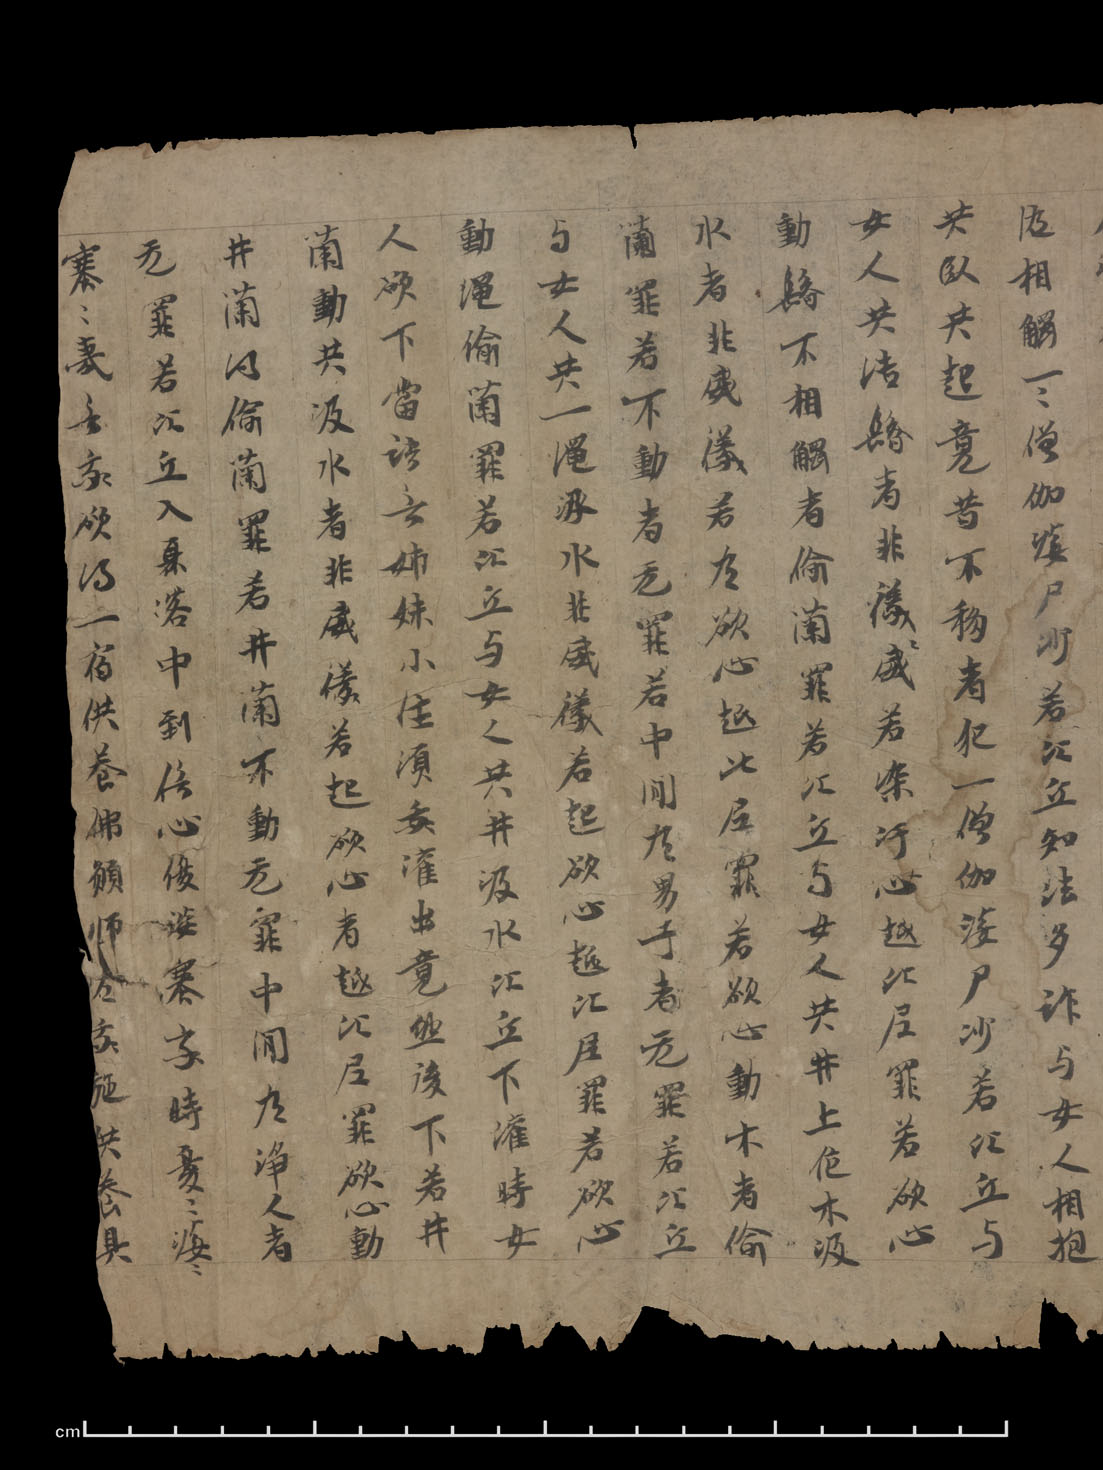 相觸一〻僧伽婆尸沙若比丘知法多詐与女人相抱
共臥共起竟昔不移者犯一僧伽婆尸沙若比丘与
女人共洁者非儀威若染汙心越比尼罪若欲心
動不相觸者偷蘭罪若比丘与女人共井上危木汲
水者非威儀若有欲心越比尼罪若欲心動木者偷
蘭罪若不動者无罪若中間有男子者无罪若比丘
与女人共一繩汲水非威儀若起欲心越比尼罪若欲心
動繩偷蘭罪若比丘与女人共井汲水比丘下灌時女
人欲下當語言姊妹小住須我灌出竟然後下若井
蘭動共汲水者非威儀若起欲心者越比尼罪欲心動
井蘭得偷蘭罪若井蘭不動无罪中間有淨人者
无罪若比丘入聚落中到信心優婆塞家時憂〻婆〻
塞〻言我欲得一宿供養佛願師施供養具